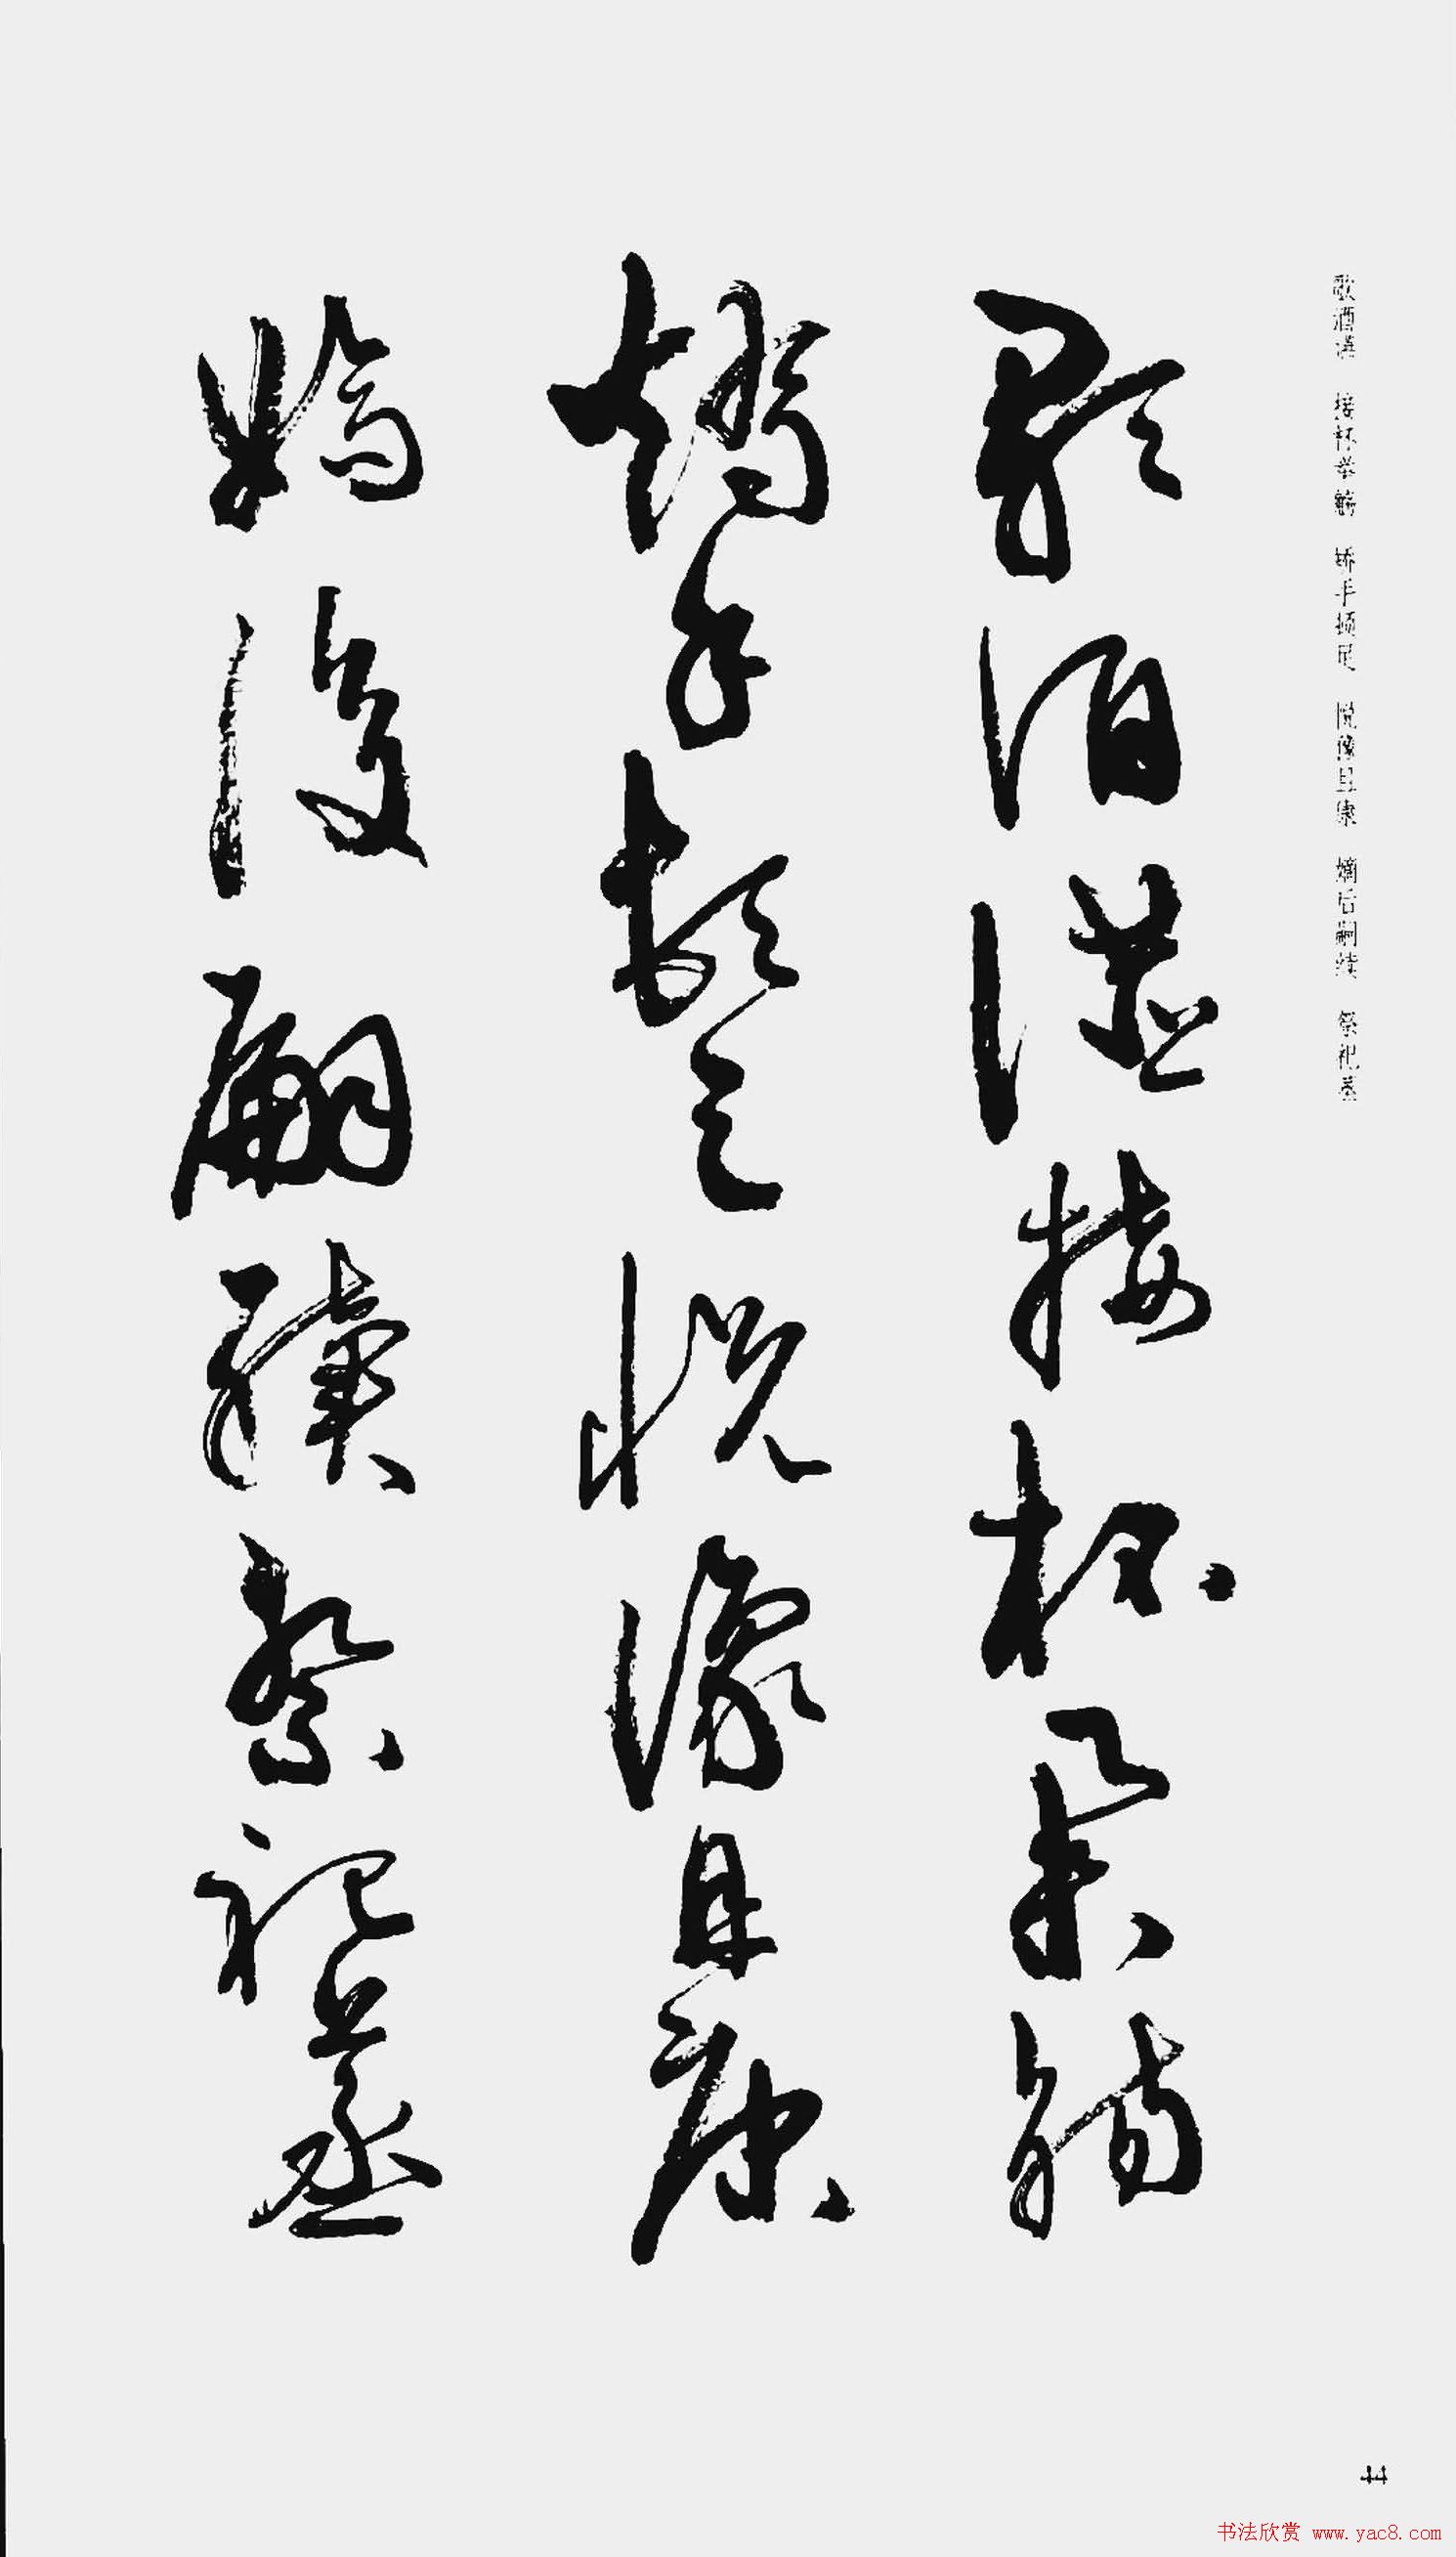 歌酒讌 接杯举觞 矫手顿足 悦豫且康 嫡后嗣续 祭祀蒸
歌酒讌接杯舉觴
矯手頓足悅豫且康
嫡後嗣續祭祀蒸
44
书法欣赏 www.yac8.com